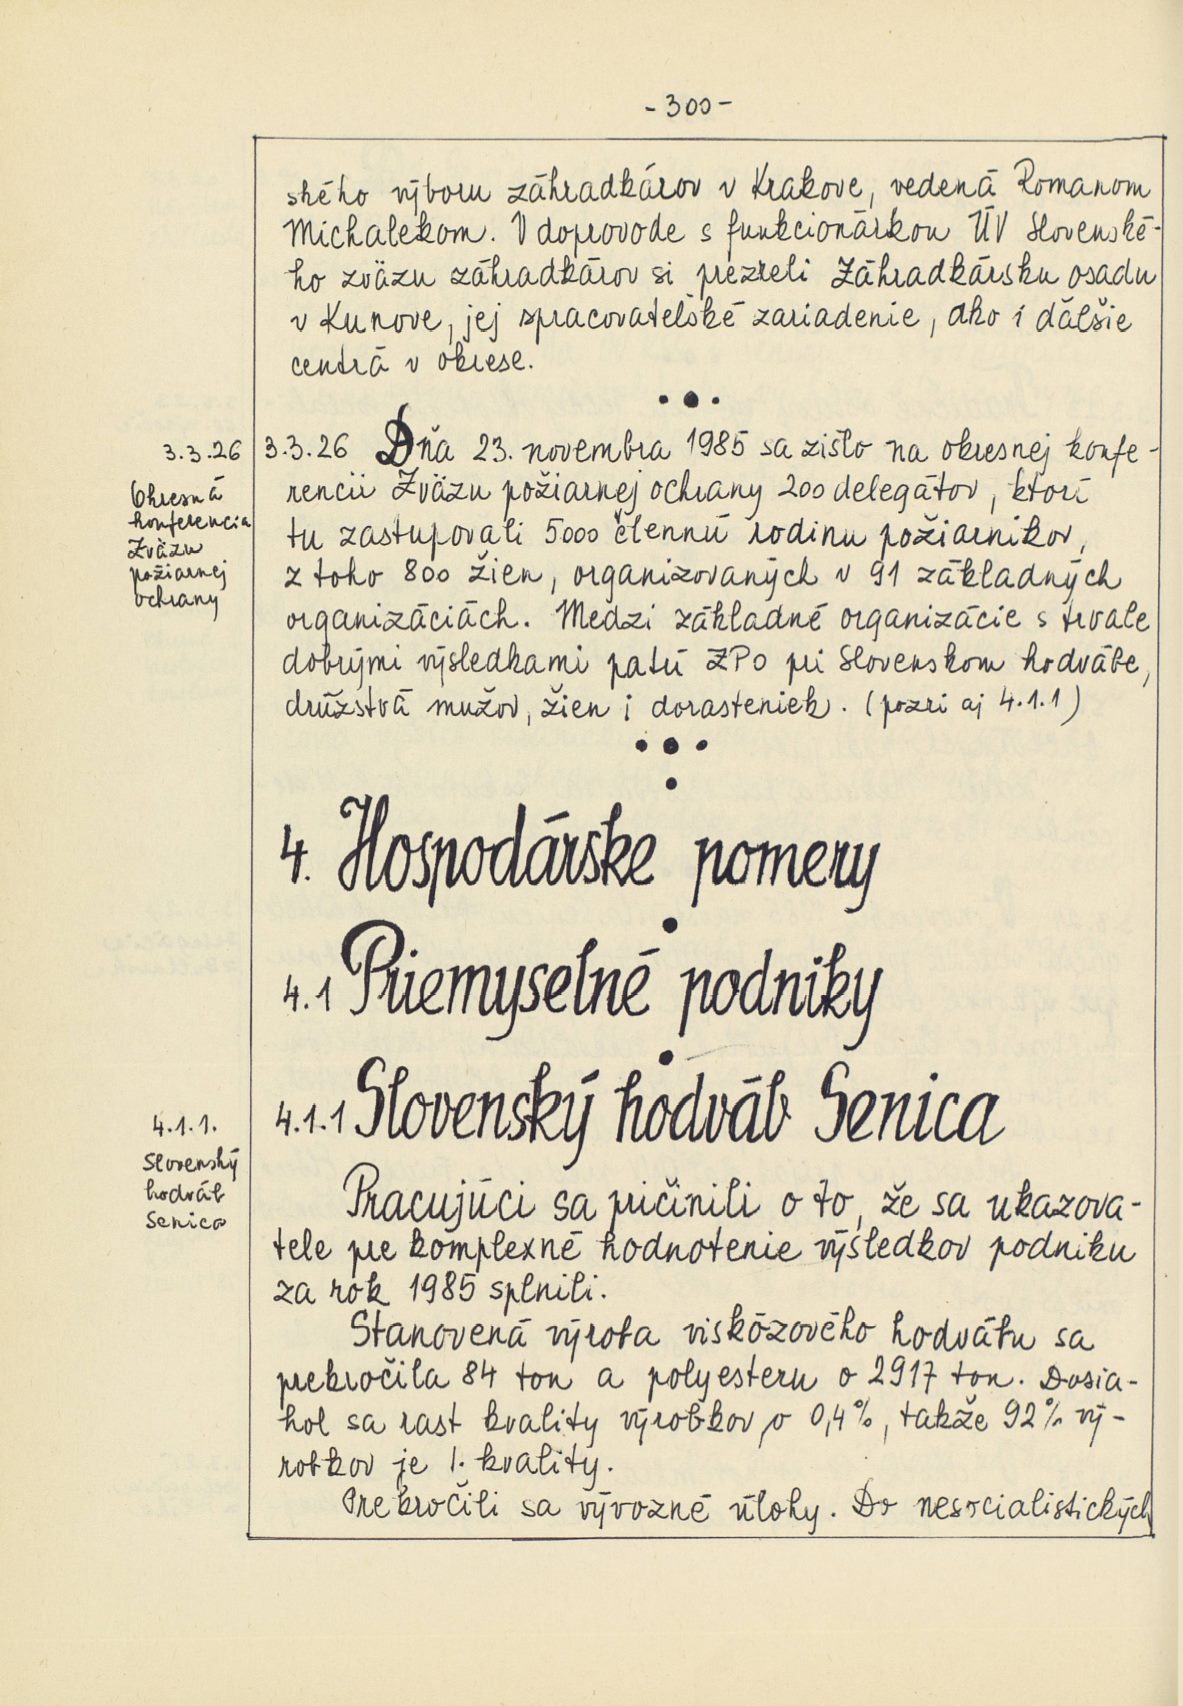 - 300 -
ského výboru záhradkárov v Krakove, vedená Romanom
Michalekom. V doprovode s funkcionárkou ÚV Slovenské-
ho zväzu záhradkárov si prezreli Záhradkársku osadu
v Kunove, jej spracovateľské zariadenie, ako i ďalšie
centrá v okrese.
3.3.26
Okresná
konferencia
Zväzu
požiarnej
ochrany
3.3.26 Dňa 23. novembra 1985 sa zišlo na okresnej konfe-
rencii Zväzu požiarnej ochrany 200 delegátov, ktorí
tu zastupovali 5000 člennú rodinu požiarnikov,
z toho 800 žien, organizovaných v 91 základných
organizáciách. Medzi základné organizácie s trvale
dobrými výsledkami patrí ZPO pri Slovenskom hodvábe,
družstvá mužov, žien i dorasteniek. (pozri aj 4.1.1)
4. Hospodárske pomery
4.1 Priemyselné podniky
4.1.1 Slovenský hodváb Senica
4.1.1.
Slovenský
hodváb
Senica
Pracujúci sa pričinili o to, že sa ukazova-
tele pre komplexné hodnotenie výsledkov podniku
za rok 1985 splnili.
Stanovená výroba viskózového hodvábu sa
prekročila 84 ton a polyesteru o 2917 ton. Dosia-
hol sa rast kvality výrobkov o 0,4%, takže 92% vý-
robkov je 1. kvality.
Prekročili sa vývozné úlohy. Do nesocialistických